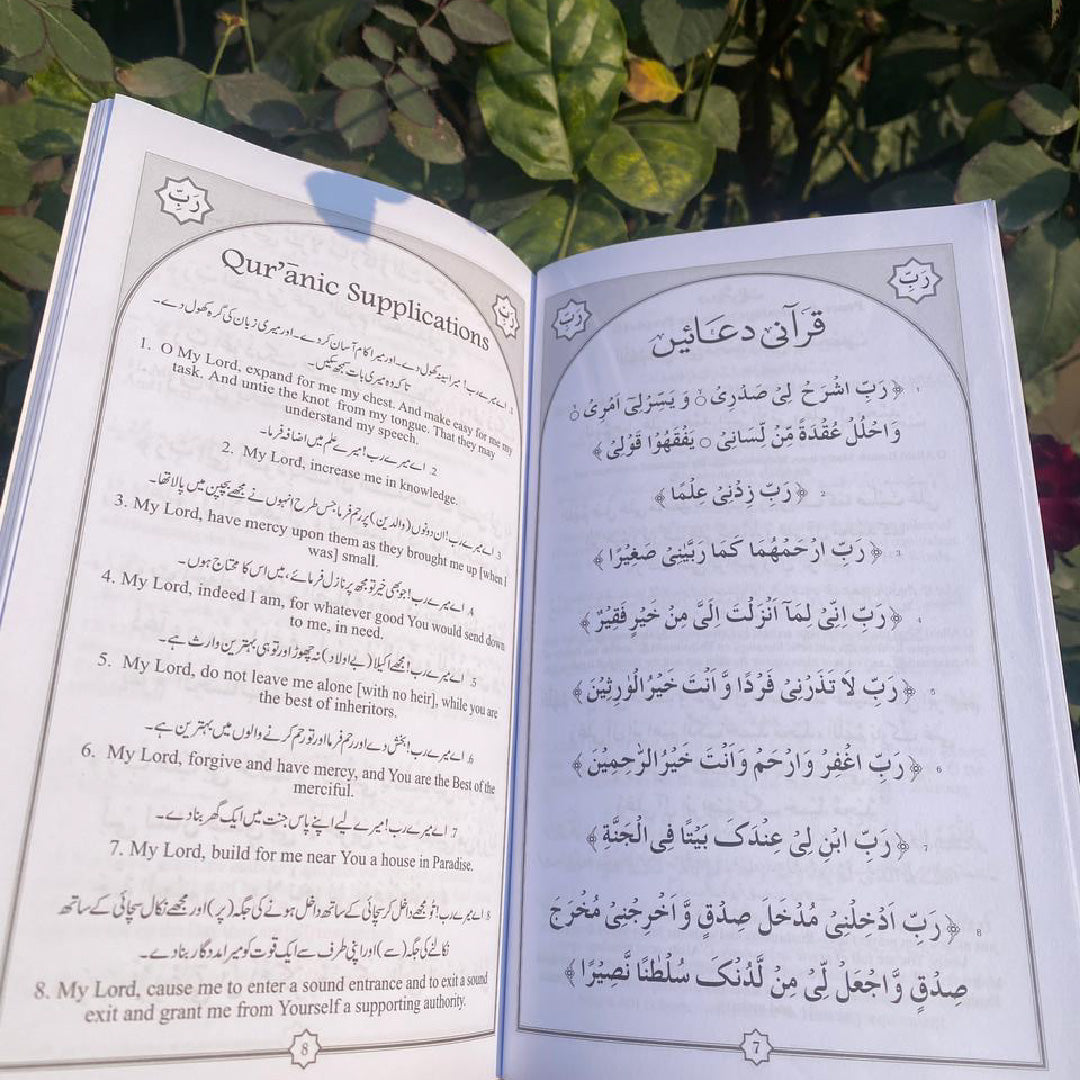 رَبِّ
رَبِّ
قرآنی دعائیں
1 ﴿ رَبِّ اشْرَحْ لِیْ صَدْرِیْ ۝ وَ یَسِّرْلِیْۤ اَمْرِیْ ۝
وَاحْلُلْ عُقْدَةً مِّنْ لِّسَانِیْ ۝ یَفْقَهُوْا قَوْلِیْ ﴾
2 ﴿ رَبِّ زِدْنِیْ عِلْمًا ﴾
3 ﴿ رَبِّ ارْحَمْهُمَا كَمَا رَبَّیٰنِیْ صَغِیْرًا ﴾
4 ﴿ رَبِّ اِنِّیْ لِمَاۤ اَنْزَلْتَ اِلَیَّ مِنْ خَیْرٍ فَقِیْرٌ ﴾
5 ﴿ رَبِّ لَا تَذَرْنِیْ فَرْدًا وَّ اَنْتَ خَیْرُ الْوٰرِثِیْنَ ﴾
6 ﴿ رَبِّ اغْفِرْ وَارْحَمْ وَاَنْتَ خَیْرُ الرّٰحِمِیْنَ ﴾
7 ﴿ رَبِّ ابْنِ لِیْ عِنْدَكَ بَیْتًا فِی الْجَنَّةِ ﴾
8 ﴿ رَبِّ اَدْخِلْنِیْ مُدْخَلَ صِدْقٍ وَّ اَخْرِجْنِیْ مُخْرَجَ
صِدْقٍ وَّ اجْعَلْ لِّیْ مِنْ لَّدُنْكَ سُلْطٰنًا نَّصِیْرًا ﴾
7
رَبِّ
رَبِّ
Qur’ānic Supplications
1 اے میرے رب! میرا سینہ کھول دے۔ اور میرا کام آسان کر دے۔ اور میری زبان کی گرہ کھول دے۔
تا کہ وہ میری بات سمجھ سکیں۔
1. O My Lord, expand for me my chest. And make easy for me my
task. And untie the knot from my tongue. That they may
understand my speech.
2 اے میرے رب! میرے علم میں اضافہ فرما۔
2. My Lord, increase me in knowledge.
3 اے میرے رب! ان دونوں (والدین) پر رحم فرما جس طرح انہوں نے مجھے بچپن میں پالا تھا۔
3. My Lord, have mercy upon them as they brought me up [when I
was] small.
4 اے میرے رب! جو بھی خیر تو مجھ پر نازل فرمائے، میں اس کا محتاج ہوں۔
4. My Lord, indeed I am, for whatever good You would send down
to me, in need.
5 اے میرے رب! مجھے اکیلا (بے اولاد) نہ چھوڑ اور تو ہی بہترین وارث ہے۔
5. My Lord, do not leave me alone [with no heir], while you are
the best of inheritors.
6 اے میرے رب! بخش دے اور رحم فرما اور تو رحم کرنے والوں میں بہترین ہے۔
6. My Lord, forgive and have mercy, and You are the Best of the
merciful.
7 اے میرے رب! میرے لیے اپنے پاس جنت میں ایک گھر بنا دے۔
7. My Lord, build for me near You a house in Paradise.
8 اے میرے رب! تو مجھے داخل کر سچائی کے ساتھ داخل ہونے کی جگہ (پر) اور مجھے نکال سچائی کے ساتھ
نکالنے کی جگہ (سے) اور اپنی طرف سے ایک قوت کو میرا مددگار بنا دے۔
8. My Lord, cause me to enter a sound entrance and to exit a sound
exit and grant me from Yourself a supporting authority.
8